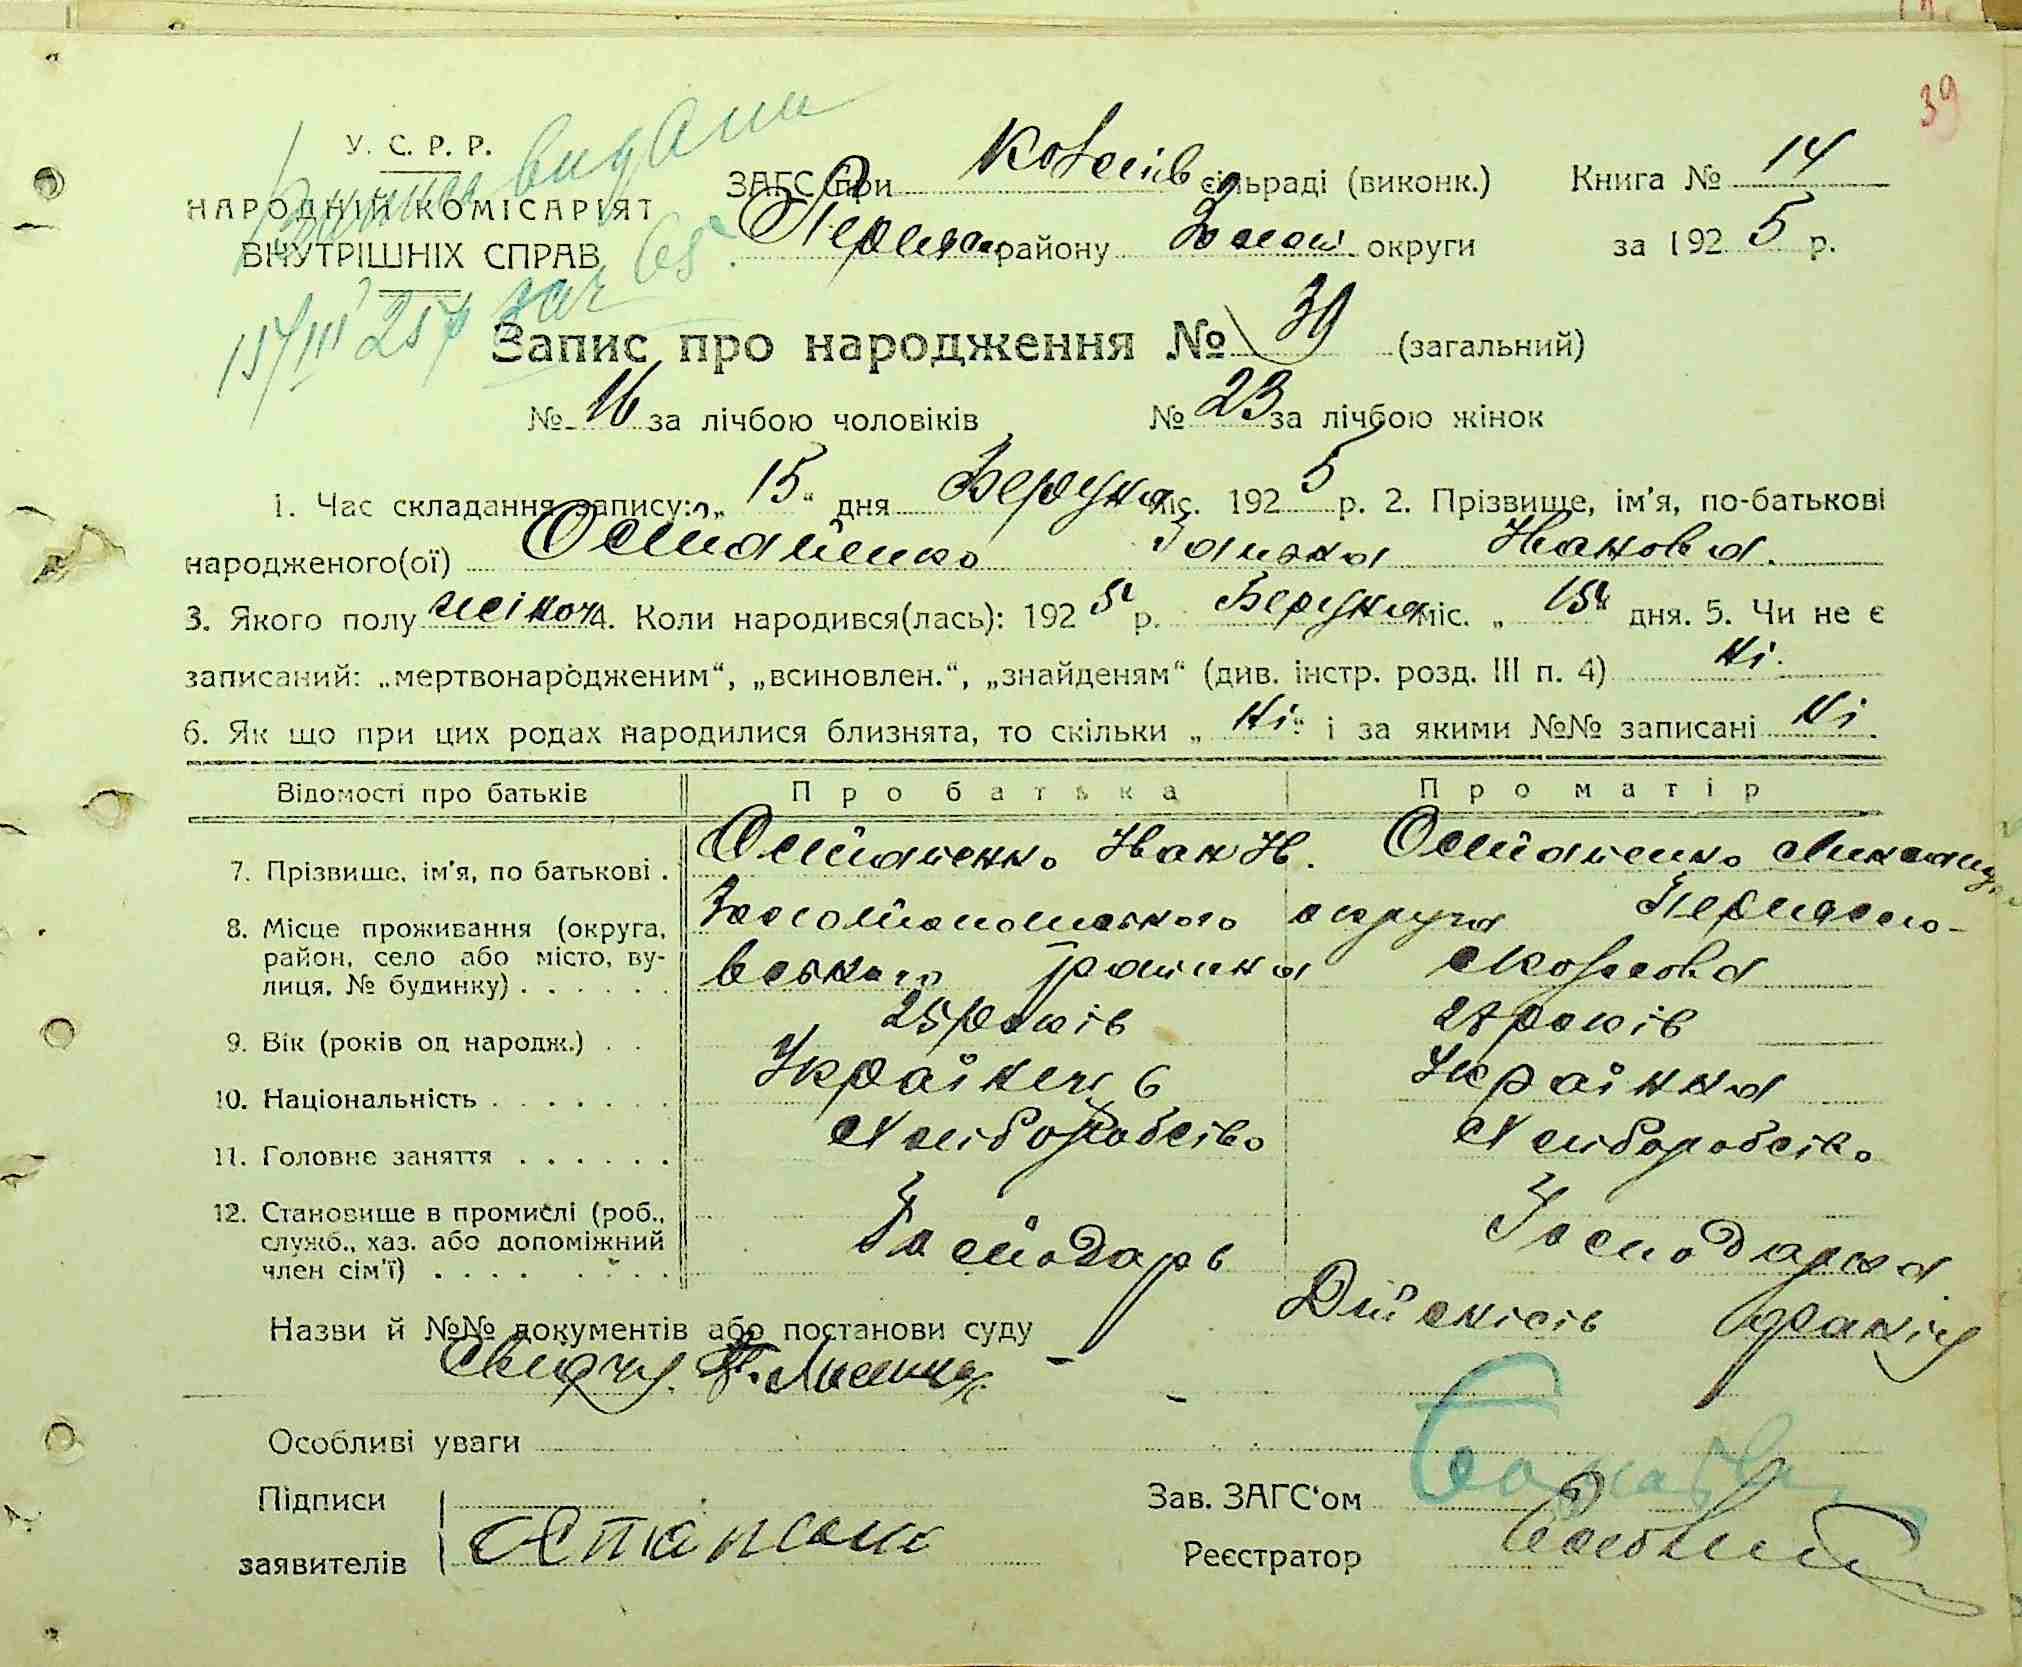 39
У. С. Р. Р.
НАРОДНІЙ КОМІСАРІЯТ
ВНУТРІШНІХ СПРАВ
видана
15/III 25 р
65
ЗАГС при сільраді (виконк.) Книга № 14
району округи за 192 5 р.
Запис про народження № 39 (загальний)
№ 16 за лічбою чоловіків № 23 за лічбою жінок
1. Час складання запису: „ 15 “ дня Березня міс. 192 5 р. 2. Прізвище, ім'я, по-батькові
народженого(ої) Остапенко Ганна Іванова.
3. Якого полу жіноч 4. Коли народився(лась): 192 5 р. Березня міс. „ 15 “ дня. 5. Чи не є
записаний: „мертвонародженим“, „всиновлен.“, „знайденям“ (див. інстр. розд. III п. 4) Ні.
6. Як що при цих родах народилися близнята, то скільки „ Ні “ і за якими №№ записані Ні.
Відомості про батьків Про батька Про матір
7. Прізвище, ім'я, по батькові . Остапенко Іван И. Остапенко
8. Місце проживання (округа, район, село або місто, вулиця, № будинку) . . . . . . Золотоношського округа Переясло-
вського района
9. Вік (років од народж.) . . 25 років 27 років
10. Національність . . . . . . . Українець Українка
11. Головне заняття . . . . . . Хліборобство Хліборобство
12. Становище в промислі (роб., служб., хаз. або допоміжний член сім'ї) . . . . . . . . Господарь Господарка
Назви й №№ документів або постанови суду Дійсність
Особливі уваги
Підписи Зав. ЗАГС‘ом
заявителів Реєстратор